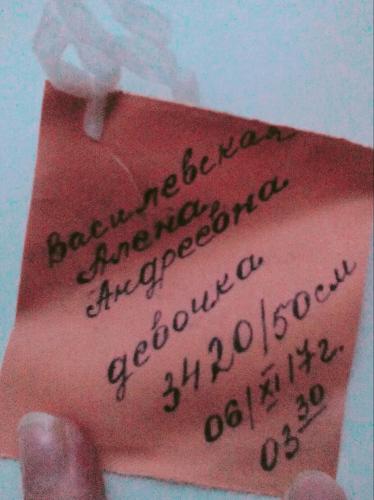 Василевская
Алена
Андреевна
девочка
3420/50см
06/XI/17г.
03 30